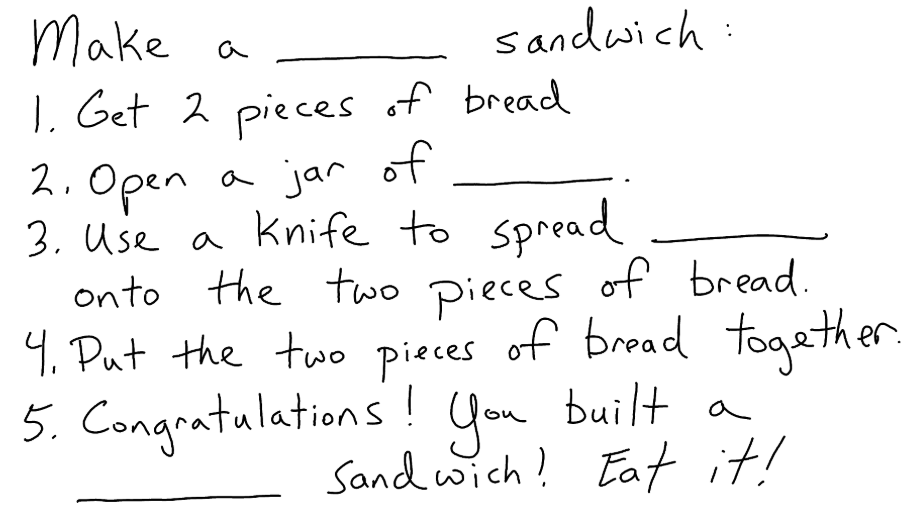 Make a ________ sandwich:
1. Get 2 pieces of bread
2. Open a jar of ________.
3. Use a knife to spread ________
onto the two pieces of bread.
4. Put the two pieces of bread together.
5. Congratulations! You built a
________ sandwich! Eat it!